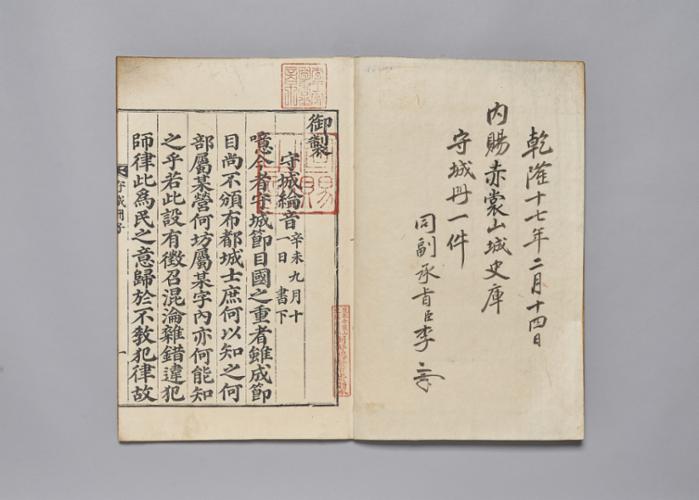 乾隆十七年二月十四日
內賜赤裳山城史庫
守城冊一件
同副承旨臣李
御製
守城綸音 辛未九月十
一日 書下
噫今者守城節目國之重者雖成節
目尚不頒布都城士庶何以知之何
部屬某營何坊屬某字內亦何能知
之乎若此設有徵召混淪雜錯違犯
師律此爲民之意歸於不敎犯律故
守城綸音
一